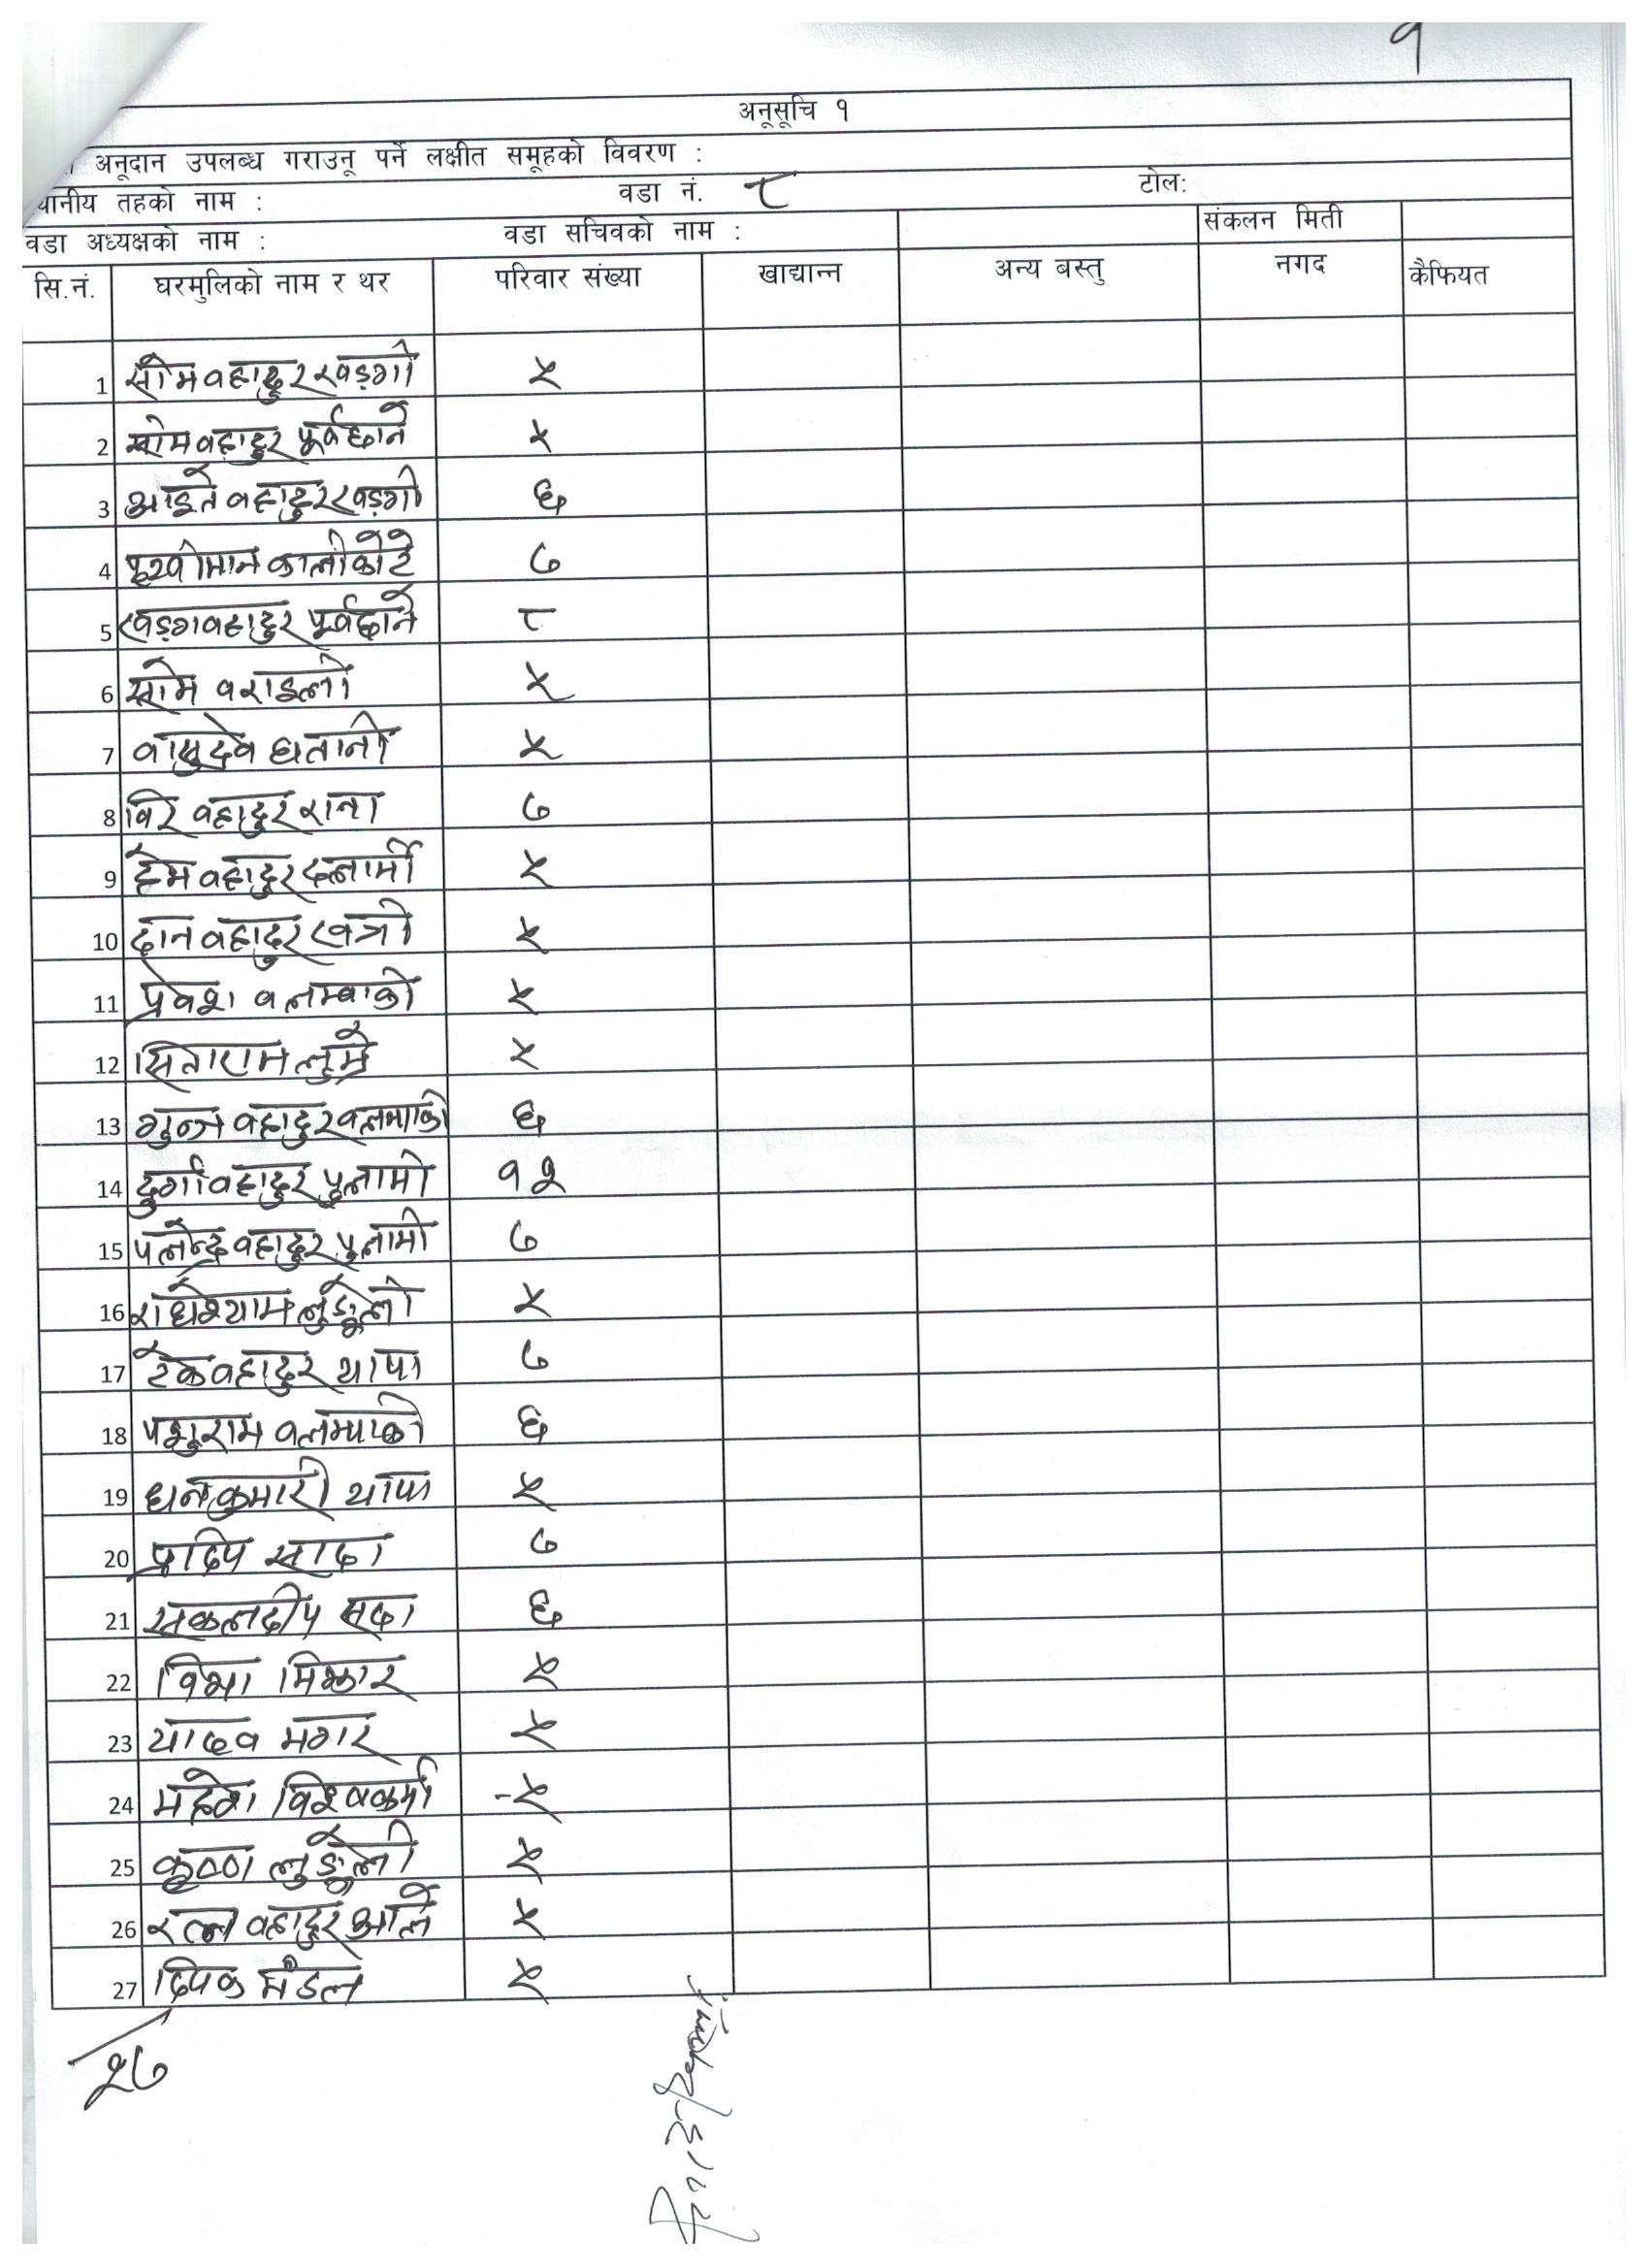 १
अनूसूचि १
अनूदान उपलब्ध गराउनू पर्ने लक्षीत समूहको विवरण :
थानीय तहको नाम : वडा नं. ८ टोल:
वडा अध्यक्षको नाम : वडा सचिवको नाम : संकलन मिती
सि.नं. घरमुलिको नाम र थर परिवार संख्या खाद्यान्न अन्य बस्तु नगद कैफियत
1 सोम वहादुर खड्गी ५
2 सोम वहादुर पूर्वछाने ५
3 आइते वहादुर खड्गी ६
4 कालीकोटे ७
5 खड्गवहादुर पूर्वछाने ८
6 सोम वराइली ५
7 वासुदेव घतानी ५
8 विर वहादुर राना ७
9 हेम वहादुर दलामी ५
10 दान वहादुर खत्री ५
11 प्रवेश वलम्पाकी ५
12 सिताराम लुम्रे ५
13 वहादुर वलम्पाकी ६
14 दुर्गा वहादुर पुलामी १२
15 पलेन्द्र वहादुर पुलामी ७
16 राधेश्याम लुङ्गेली ५
17 टेक वहादुर थापा ७
18 पशुराम वलम्पाकी ६
19 धनकुमारी थापा ५
20 प्रदिप सादा ७
21 सकलदीप सदा ६
22 मिझार ५
23 यादव मगर ५
24 महेश विश्वकर्मा ५
25 कृष्ण लुङ्गेली ५
26 रत्न वहादुर आले ५
27 दिपक मंडल ५
२७